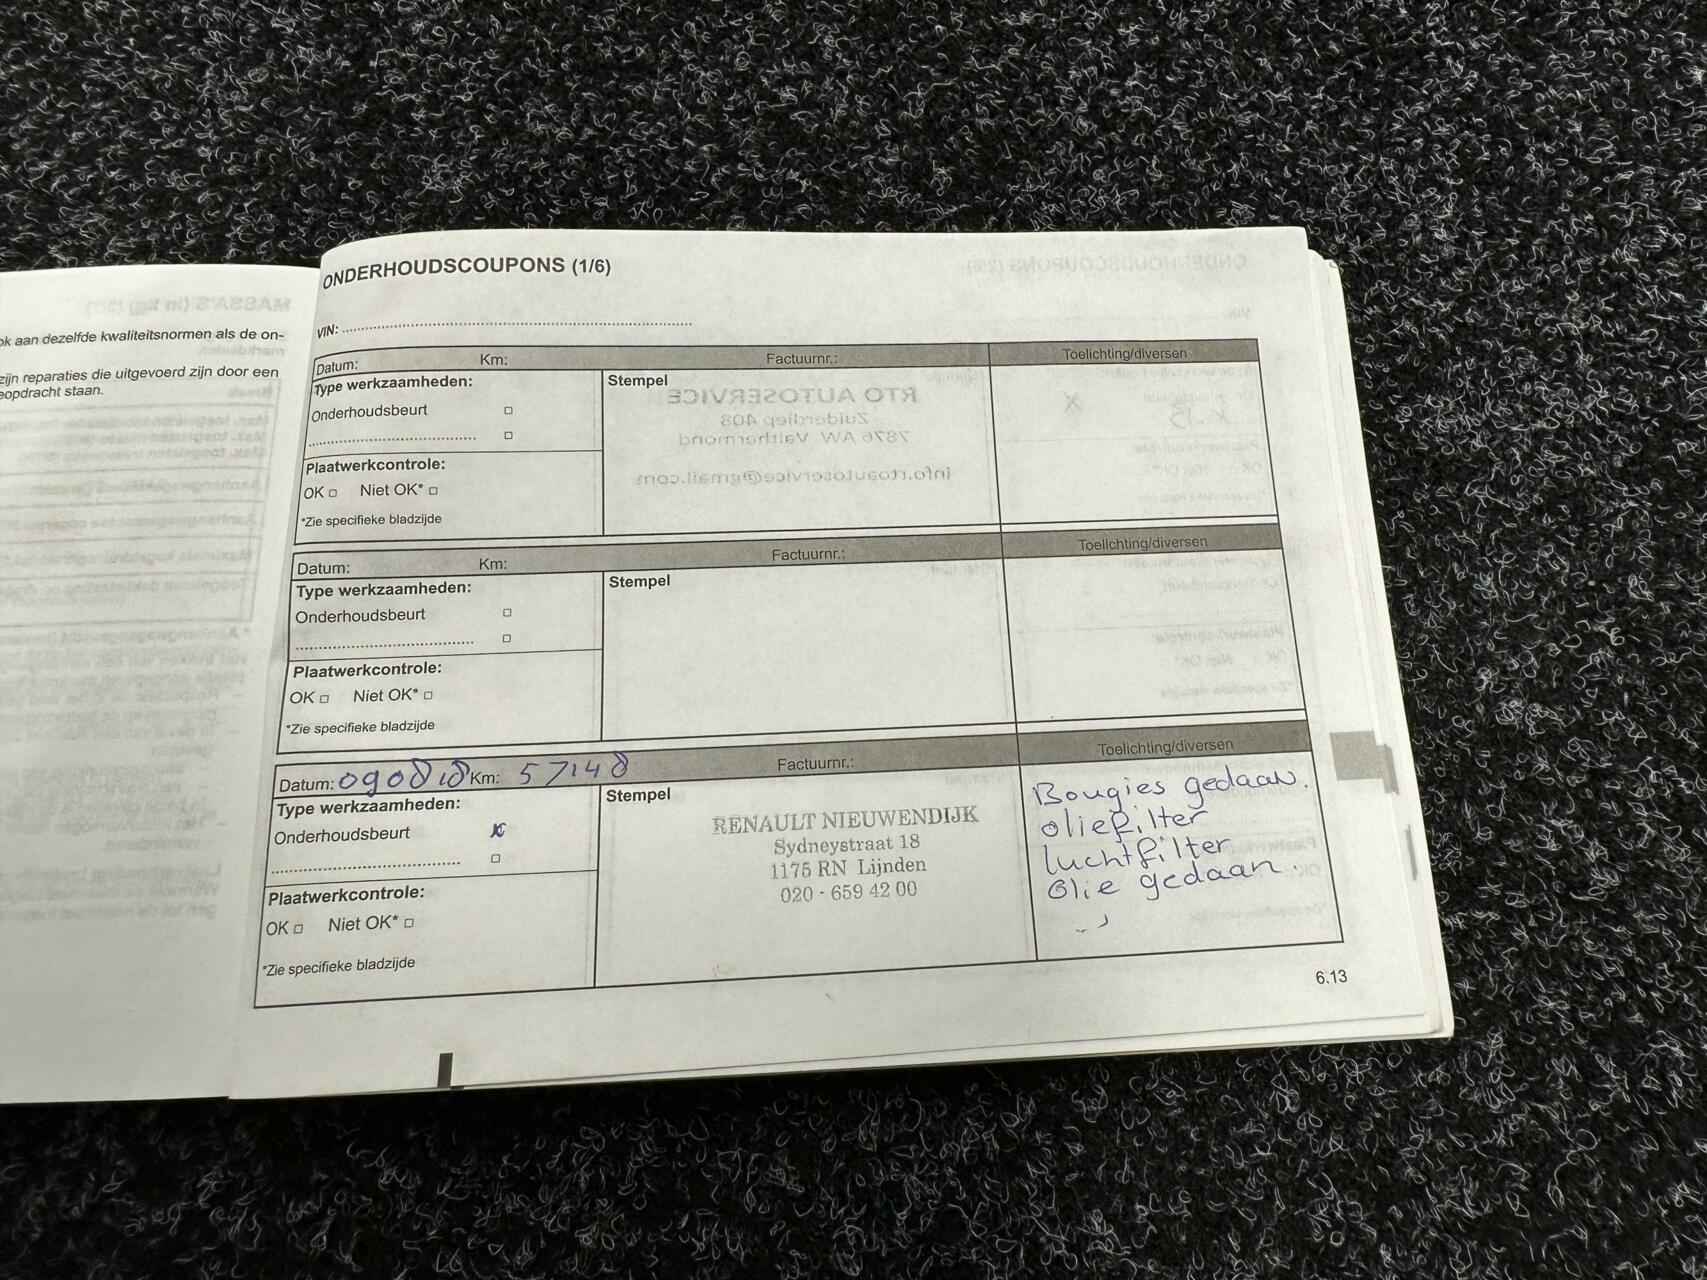 ok aan dezelfde kwaliteitsnormen als de on-
zijn reparaties die uitgevoerd zijn door een
eopdracht staan.
ONDERHOUDSCOUPONS (1/6)
VIN:
Datum: Km: Factuurnr.: Toelichting/diversen
Type werkzaamheden: Stempel
Onderhoudsbeurt
Plaatwerkcontrole:
OK Niet OK*
*Zie specifieke bladzijde
RTO AUTOSERVICE
Zuiderdiep 408
7876 AW Valthermond
info.rtoautoservice@gmail.com
Datum: Km: Factuurnr.: Toelichting/diversen
Type werkzaamheden: Stempel
Onderhoudsbeurt
Plaatwerkcontrole:
OK Niet OK*
*Zie specifieke bladzijde
Datum: 090818 Km: 57148 Factuurnr.: Toelichting/diversen
Type werkzaamheden: Stempel
Onderhoudsbeurt x
Plaatwerkcontrole:
OK Niet OK*
*Zie specifieke bladzijde
RENAULT NIEUWENDIJK
Sydneystraat 18
1175 RN Lijnden
020 - 659 42 00
Bougies gedaan.
oliefilter
luchtfilter
Olie gedaan.
6.13